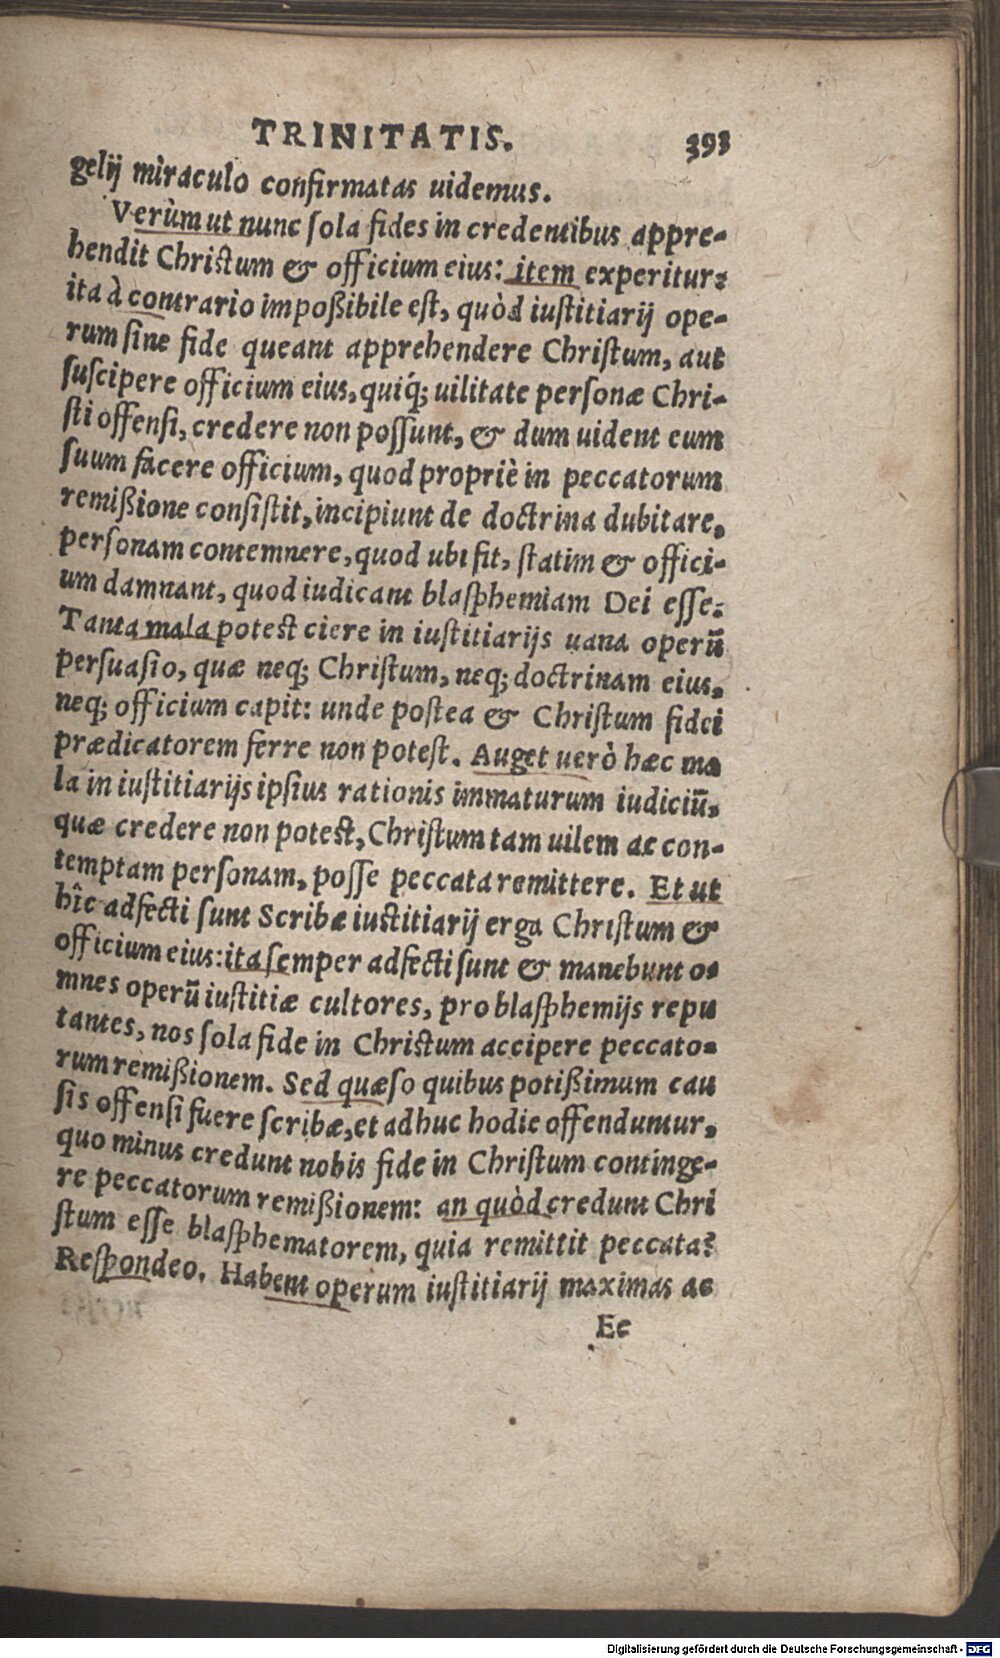 TRINITATIS. 393
gelij miraculo confirmatas uidemus.
Verùm ut nunc ſola fides in credentibus appre-
hendit Chriſtum & officium eius: item experitur:
ita à contrario impoßibile eſt, quòd iuſtitiarij ope-
rum ſine fide queant apprehendere Chriſtum, aut
ſuſcipere officium eius, quiq́; uilitate perſonæ Chri-
ſti offenſi, credere non poſſunt, & dum uident eum
ſuum facere officium, quod propriè in peccatorum
remißione conſiſtit, incipiunt de doctrina dubitare,
perſonam contemnere, quod ubi fit, ſtatim & offici-
um damnant, quod iudicant blaſphemiam Dei eſſe:
Tanta mala poteſt ciere in iuſtitiarijs uana operū
perſuaſio, quæ neq; Chriſtum, neq; doctrinam eius,
neq; officium capit: unde poſtea & Chriſtum fidei
prædicatorem ferre non poteſt. Auget uerò hæc ma
la in iuſtitiarijs ipſius rationis immaturum iudiciū,
quæ credere non poteſt, Chriſtum tam uilem ac con-
temptam perſonam, poſſe peccata remittere. Et ut
hîc adfecti ſunt Scribæ iuſtitiarij erga Chriſtum &
officium eius: ita ſemper adfecti ſunt & manebunt o-
mnes operū iuſtitiæ cultores, pro blaſphemijs repu
tantes, nos ſola fide in Chriſtum accipere peccato-
rum remißionem. Sed quæſo quibus potißimum cau
ſis offenſi fuere ſcribæ, et adhuc hodie offenduntur,
quo minus credunt nobis fide in Chriſtum continge-
re peccatorum remißionem: an quòd credunt Chri
ſtum eſſe blaſphematorem, quia remittit peccata?
Reſpondeo. Habent operum iuſtitiarij maximas ac
Ee
Digitalisierung gefördert durch die Deutsche Forschungsgemeinschaft - DFG